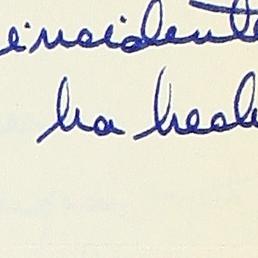 incidente
ha heal